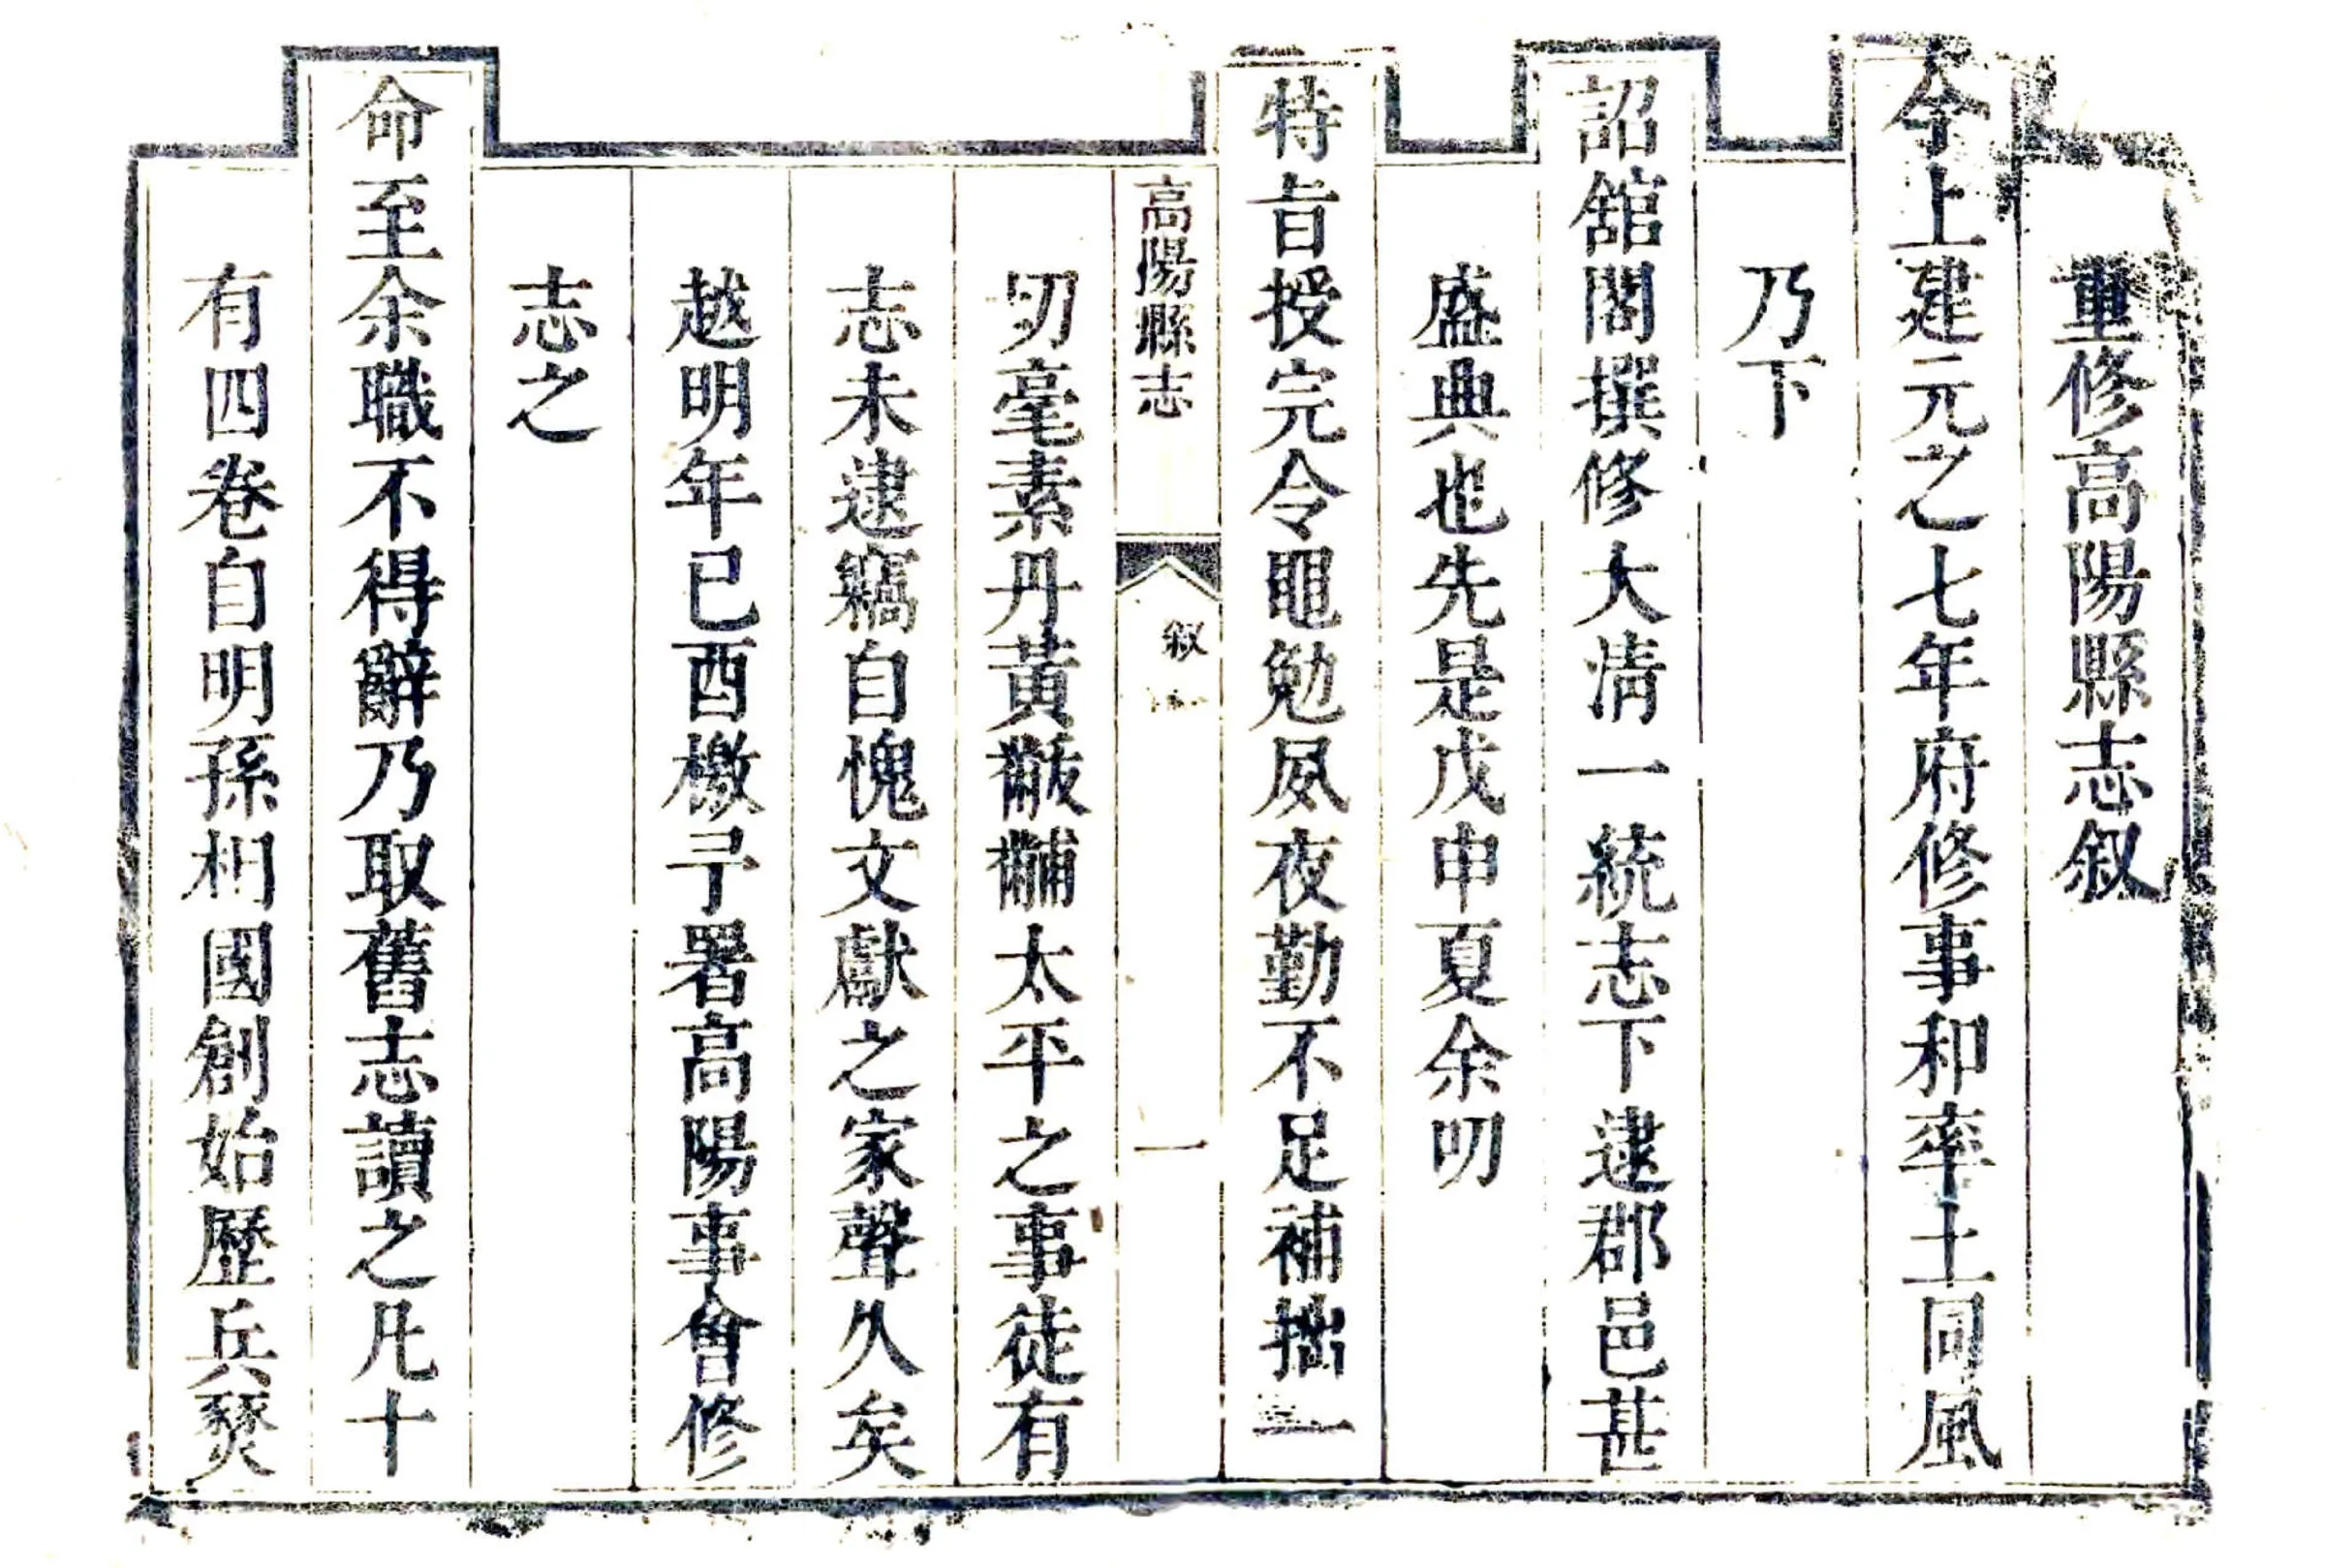 重修高陽縣志叙
今上建元之七年府修事和率土同風
乃下
詔舘閣撰修大淸一統志下逮郡邑甚
盛典也先是戊申夏余叨
特旨授完令黽勉夙夜勤不足補拙一
高陽縣志
叙
一
切毫素丹黃黻黼太平之事徒有
志未逮竊自愧文獻之家聲久矣
越明年已酉檄予署高陽事會修
志之
命至余職不得辭乃取舊志讀之凡十
有四卷自明孫相國創始歷兵燹